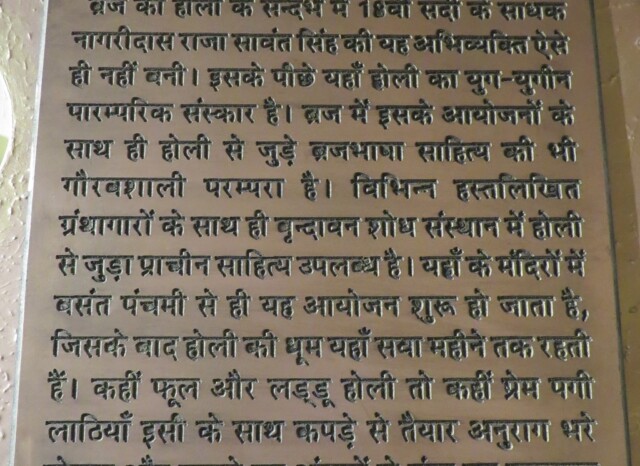 ब्रज की होली के सन्दर्भ में 18वीं सदी के साधक
नागरीदास राजा सावंत सिंह की यह अभिव्यक्ति ऐसे
ही नहीं बनी। इसके पीछे यहाँ होली का युग-युगीन
पारम्परिक संस्कार है। ब्रज में इसके आयोजनों के
साथ ही होली से जुड़े ब्रजभाषा साहित्य की भी
गौरवशाली परम्परा है। विभिन्न हस्तलिखित
ग्रंथागारों के साथ ही वृन्दावन शोध संस्थान में होली
से जुड़ा प्राचीन साहित्य उपलब्ध है। यहाँ के मंदिरों में
बसंत पंचमी से ही यह आयोजन शुरू हो जाता है,
जिसके बाद होली की धूम यहाँ सवा महीने तक रहती
हैं। कहीं फूल और लड्डू होली तो कहीं प्रेम पगी
लाठियाँ इसी के साथ कपड़े से तैयार अनुराग भरे